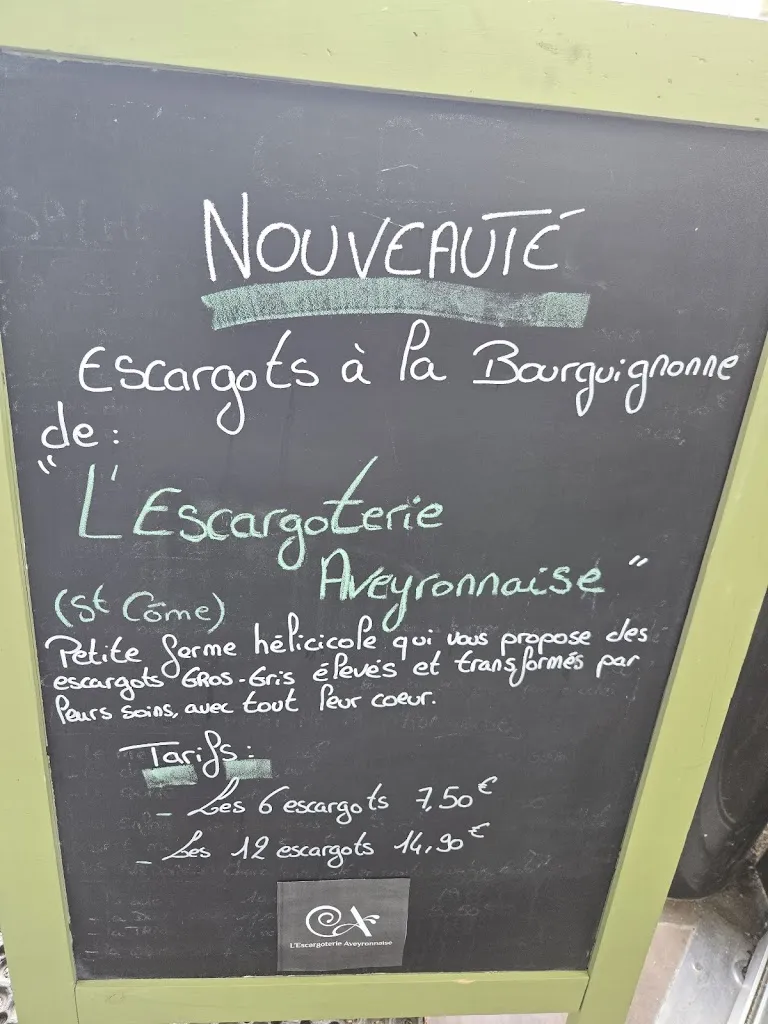 NOUVEAUTÉ
Escargots à la Bourguignonne
de :
"L'Escargoterie
Aveyronnaise"
(St Côme)
Petite ferme hélicicole qui vous propose des
escargots GROS-Gris élevés et transformés par
leurs soins, avec tout leur coeur.
Tarifs :
- Les 6 escargots 7,50€
- Les 12 escargots 14,90€
L'Escargoterie Aveyronnaise